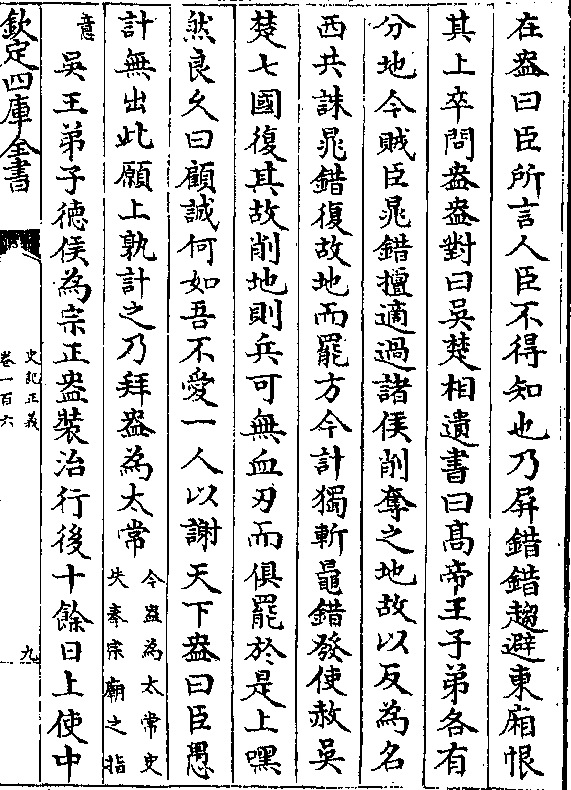 在盎曰臣所言人臣不得知也乃屏錯錯趨避東廂恨
其上卒問盎盎對曰吳楚相遺書曰髙帝王子弟各有
分地今賊臣晁錯擅適過諸侯削奪之地故以反為名
西共誅晁錯復故地而罷方今計獨斬鼂錯發使赦吳
楚七國復其故削地則兵可無血刃而俱罷於是上嘿
然良乆曰顧誠何如吾不愛一人以謝天下盎曰臣愚
計無出此願上孰計之乃拜盎為太常
令盎為太常史
失奉宗廟之指
意
吳王弟子徳侯為宗正盎裝治行後十餘日上使中
欽定四庫全書
史記正義
卷一百六
九